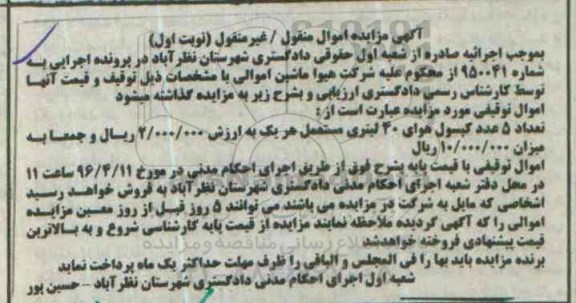 آگهی مزایده اموال منقول / غیرمنقول (نوبت اول)
بموجب اجرائیه صادره از شعبه اول حقوقی دادگستری شهرستان نظرآباد در پرونده اجرایی به
شماره ۹۵۰۰۴۱ از محکوم علیه شرکت هیوا ماشین اموالی با مشخصات ذیل توقیف و قیمت آنها
توسط کارشناس رسمی دادگستری ارزیابی و بشرح زیر به مزایده گذاشته میشود
اموال توقیفی مورد مزایده عبارت است از:
تعداد ۵ عدد کپسول هوای ۴۰ لیتری مستعمل هر یک به ارزش ۲/۰۰۰/۰۰۰ ریال و جمعا به
میزان ۱۰/۰۰۰/۰۰۰ ریال
اموال توقیفی با قیمت پایه بشرح فوق از طریق اجرای احکام مدنی در مورخ ۹۶/۴/۱۱ ساعت ۱۱
در محل دفتر شعبه اجرای احکام مدنی دادگستری شهرستان نظرآباد به فروش خواهد رسید
اشخاصی که مایل به شرکت در مزایده می باشند می توانند ۵ روز قبل از روز معین مزایده
اموالی را که آگهی گردیده ملاحظه نمایند مزایده از قیمت پایه کارشناسی شروع و به بالاترین
قیمت پیشنهادی فروخته خواهدشد
برنده مزایده باید بها را فی المجلس و الباقی را ظرف مهلت حداکثر یک ماه پرداخت نماید
شعبه اول اجرای احکام مدنی دادگستری شهرستان نظرآباد - حسین پور